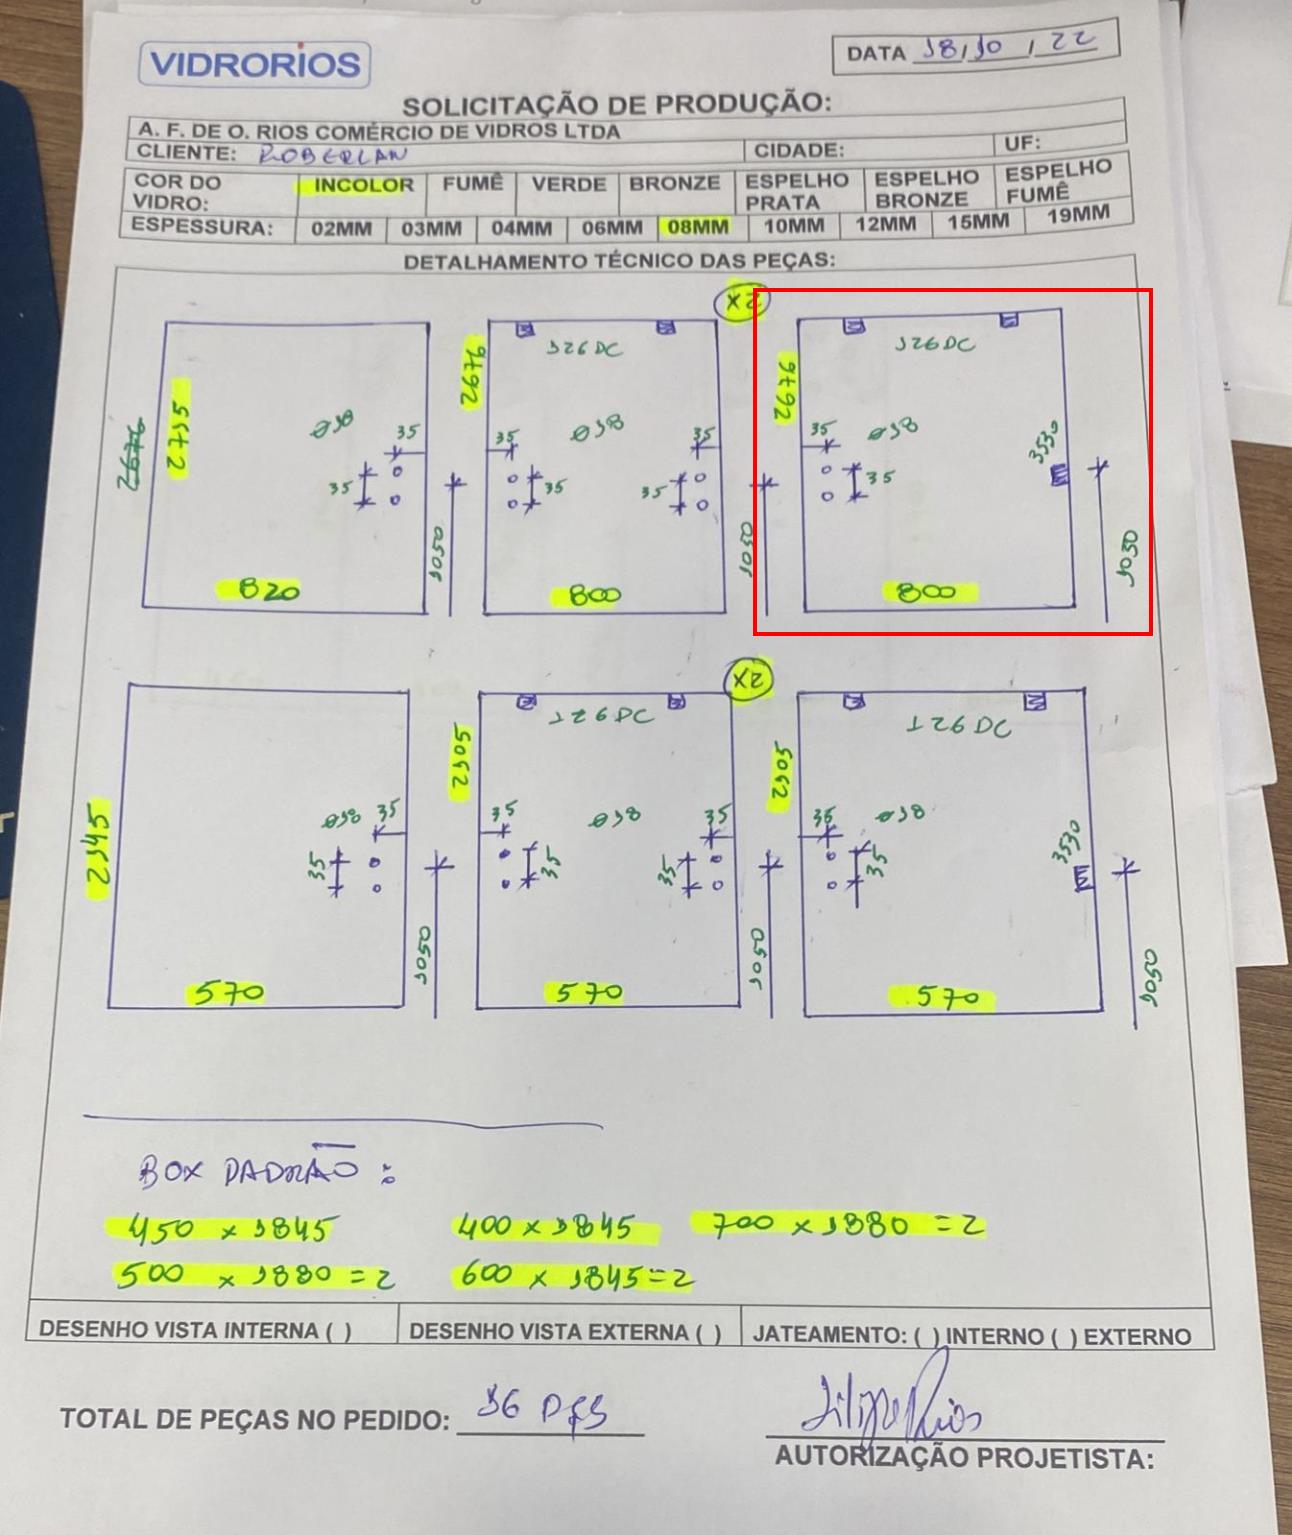 VIDRORIOS
DATA 18/10/22
SOLICITAÇÃO DE PRODUÇÃO:
A. F. DE O. RIOS COMÉRCIO DE VIDROS LTDA
CLIENTE: ROBERLAN CIDADE: UF:
COR DO VIDRO: INCOLOR FUMÊ VERDE BRONZE ESPELHO PRATA ESPELHO BRONZE ESPELHO FUMÊ
ESPESSURA: 02MM 03MM 04MM 06MM 08MM 10MM 12MM 15MM 19MM
DETALHAMENTO TÉCNICO DAS PEÇAS:
2X
126 DC 126 DC
ø18 35 35 ø18 35 35 ø18 3530
35 35 35 35
1050 1050 1050
820 800 800
2X
126 DC 126 DC
ø18 35 35 ø18 35 35 ø18 3530
35 35 35 35
2145
1050 1050 1050
570 570 570
BOX PADRÃO:
450 x 1845 400 x 1845 700 x 1880 = 2
500 x 1880 = 2 600 x 1845 = 2
DESENHO VISTA INTERNA ( ) DESENHO VISTA EXTERNA ( ) JATEAMENTO: ( ) INTERNO ( ) EXTERNO
TOTAL DE PEÇAS NO PEDIDO: 16 PÇS
Filipe Rios
AUTORIZAÇÃO PROJETISTA: